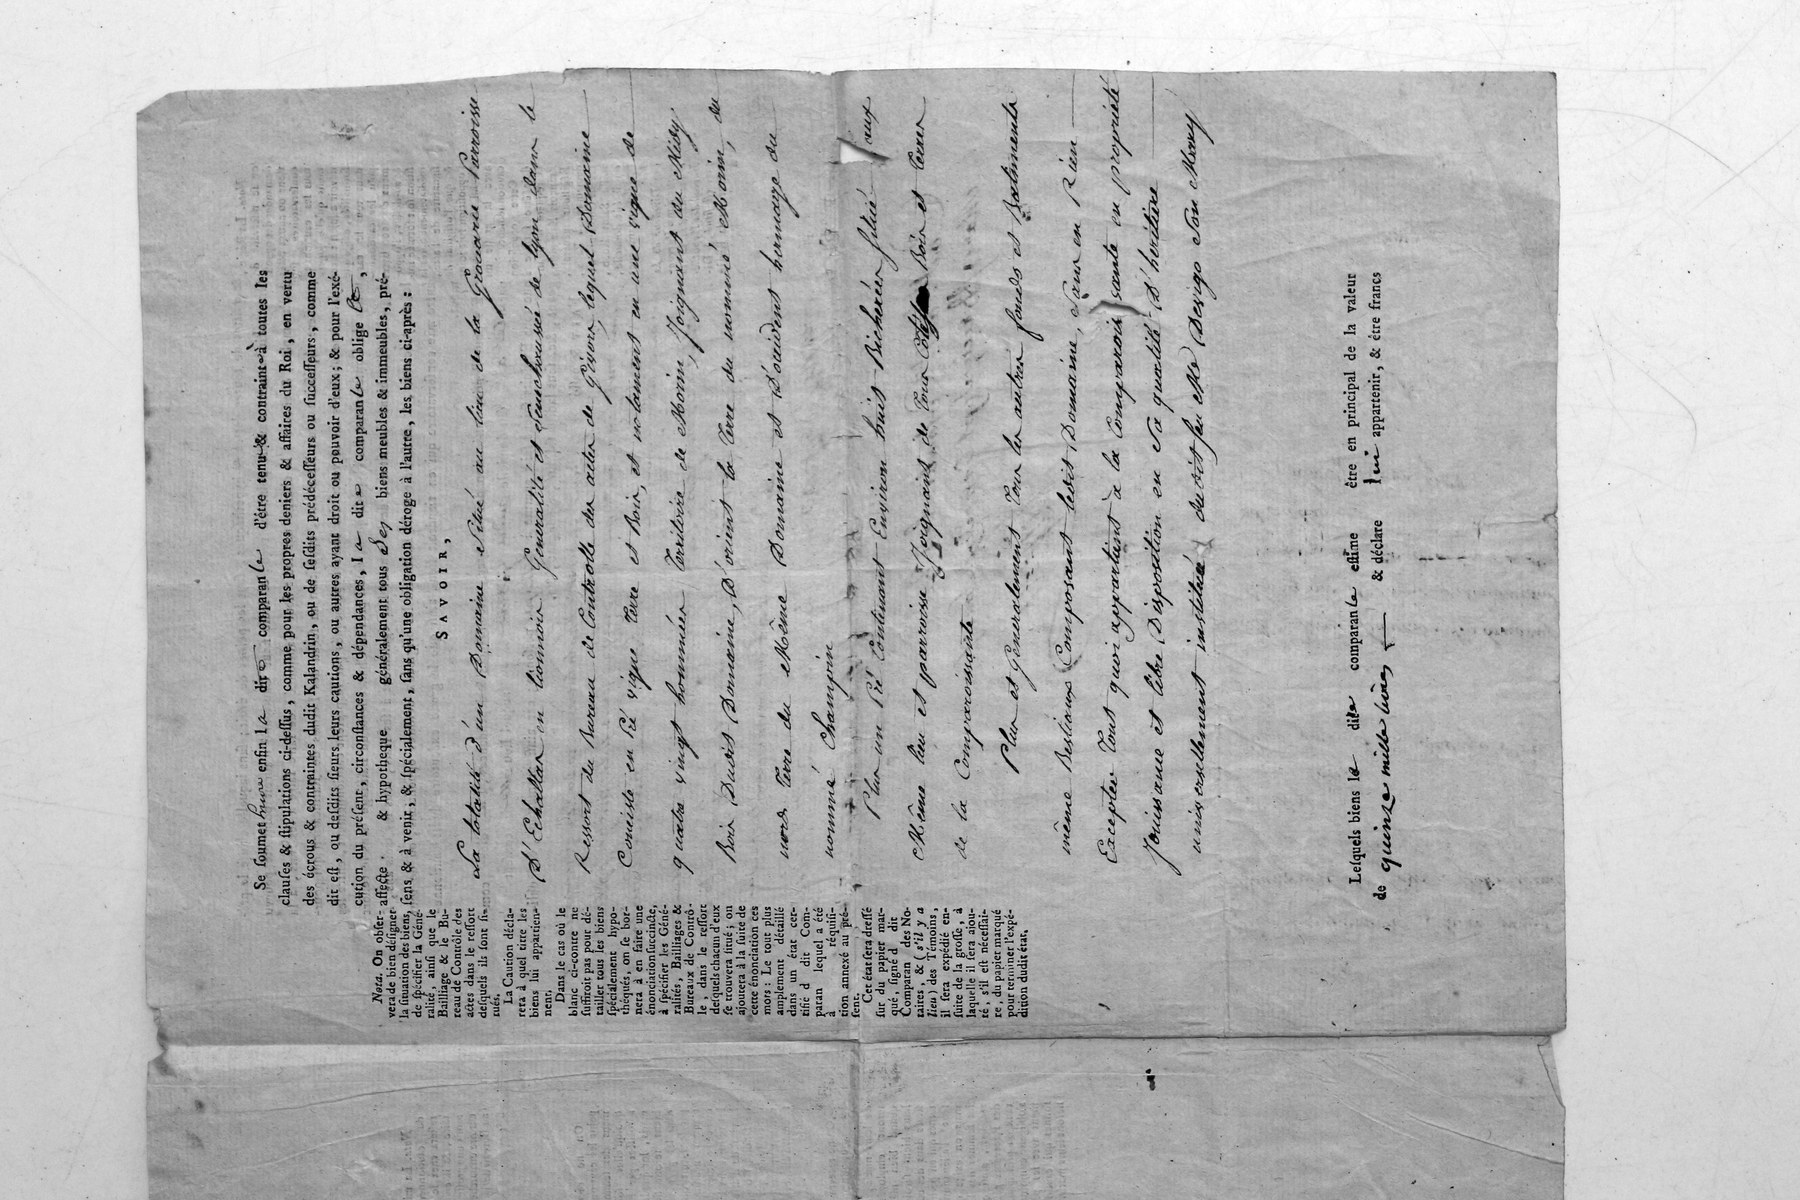 Se ſoumet hure enfin la dite comparante d'être tenue & contrainte à toutes les
clauſes & ſtipulations ci-deſſus, comme pour les propres deniers & affaires du Roi, en vertu
des écrous & contraintes dudit Kalandrin, ou de ſeſdits prédéceſſeurs ou ſucceſſeurs, comme
dit eſt, ou deſdits ſieurs leurs cautions, ou autres ayant droit ou pouvoir d'eux; & pour l'exé-
cution du préſent, circonſtances & dépendances, la dite comparante oblige
affecte & hypotheque généralement tous Ses biens meubles & immeubles, pré-
ſens & à venir, & ſpécialement, ſans qu'une obligation déroge à l'autre, les biens ci-après :
SAVOIR,
La totalité d'un Domaine Situé au lieu de la Parroisse
D'Echallas en lionnois Generalité et Senechaussée de lyon dans le
Ressort du Bureau de Controlle des actes de Givors, lequel Domaine
Consiste en Pré vigne terre et Bois, et notament en une vigne de
quatre vingt hommées territoire de Morin, Joignant du Midy
Bois Dudit Domaine, D'orient la terre du nommé Morin, du
nord terre du Même Domaine et D'occident hermage du
nommé Champin
Plus un Pré Contenant Environ huit Bicherées Situé aux
Même lieu et parroisse Joignant de tous Bois et terres
de la Comparoissante
Plus et Generalement tous les autres fonds et Batiments
même Bestiaux Composant ledit Domaine, Sans en Rien
Excepter tout quoi appartient à la Comparoissante en propriété
Jouissance et libre Disposition en Sa qualité D'heritiere
universellement instituée dudit feu Me Son Mary
Leſquels biens la dite comparante eſtime être en principal de la valeur
de quinze mille livres & déclare lui appartenir, & être francs
Nota. On obſer-
vera de bien déſigner
la ſituation des biens,
de ſpécifier la Géné-
ralité, ainſi que le
Bailliage & le Bu-
reau de Contrôle des
actes dans le reſſort
deſquels ils ſont ſi-
tués.
La Caution décla-
rera à quel titre les
biens lui appartien-
nent.
Dans le cas où le
blanc ci-contre ne
ſuffiroit pas pour dé-
tailler tous les biens
ſpécialement hypo-
théqués, on ſe bor-
nera à en faire une
énonciation ſuccincte,
à ſpécifier les Géné-
ralités, Bailliages &
Bureaux de Contrô-
le, dans le reſſort
deſquels chacun d'eux
ſe trouvera ſitué; on
ajoutera à la ſuite de
cette énonciation ces
mots : Le tout plus
amplement détaillé
dans un état cer-
tifié d dit Com-
paran lequel a été
à réquiſi-
tion annexé au pré-
ſent.
Cet état ſera dreſſé
ſur du papier mar-
qué, ſigné d dit
Comparan des No-
taires, & (s'il y a
lieu) des Témoins,
il ſera expédié en-
ſuite de la groſſe, à
laquelle il ſera ajou-
té, s'il eſt néceſſai-
re, du papier marqué
pour terminer l'expé-
dition dudit état.